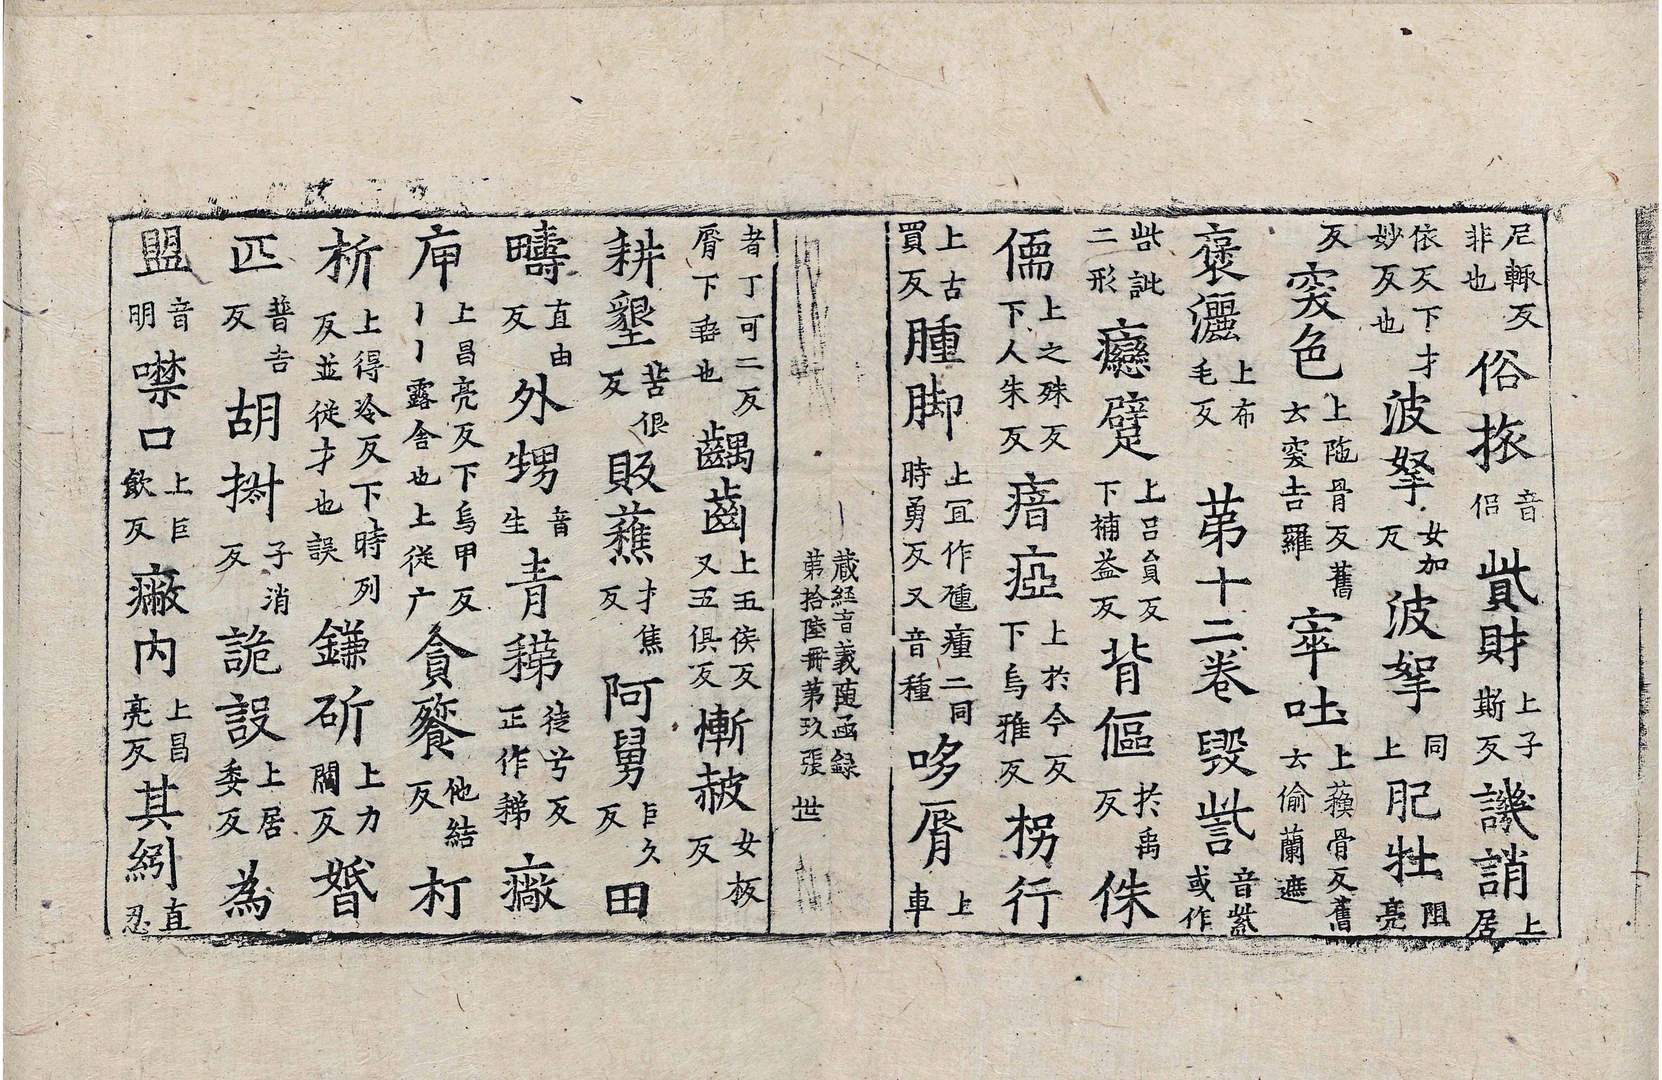 尼輙反非也俗旅音侶貲財上子斯反譏誚上居
依反下才妙反也波拏女加反波拏同上肥牡阻亮
反突色上陁骨反舊云突吉羅窣吐上蘓骨反舊云偷蘭遮
褒灑上布毛反苐十二卷毀訾音紫或作
呰訿二形癵躄上吕貟反下補益反背傴扵禹反侏
儒上之殊反下人朱反瘖瘂上扵今反下烏雅反柺行
上古買反腫脚上冝作㣫瘇二同時勇反又音種哆脣上車
藏經音義随函録
第拾陸冊苐玖張 世
者丁可二反脣下垂也齵齒上五侯反又五俱反慚赧女板反
耕墾苦很反販蕉才焦反阿舅巨久反田
疇直由反外甥音生青稊徒兮反正作䅧廠
庘上昌亮反下烏甲反丨丨露舍也上従广貪餮他結反朾
析上得冷反下時列反並従才也誤鎌斫上力閻反婚
匹普吉反胡㨗子消反詭設上居委反為
盟音明噤口上巨飲反廠内上昌亮反其紖直忍